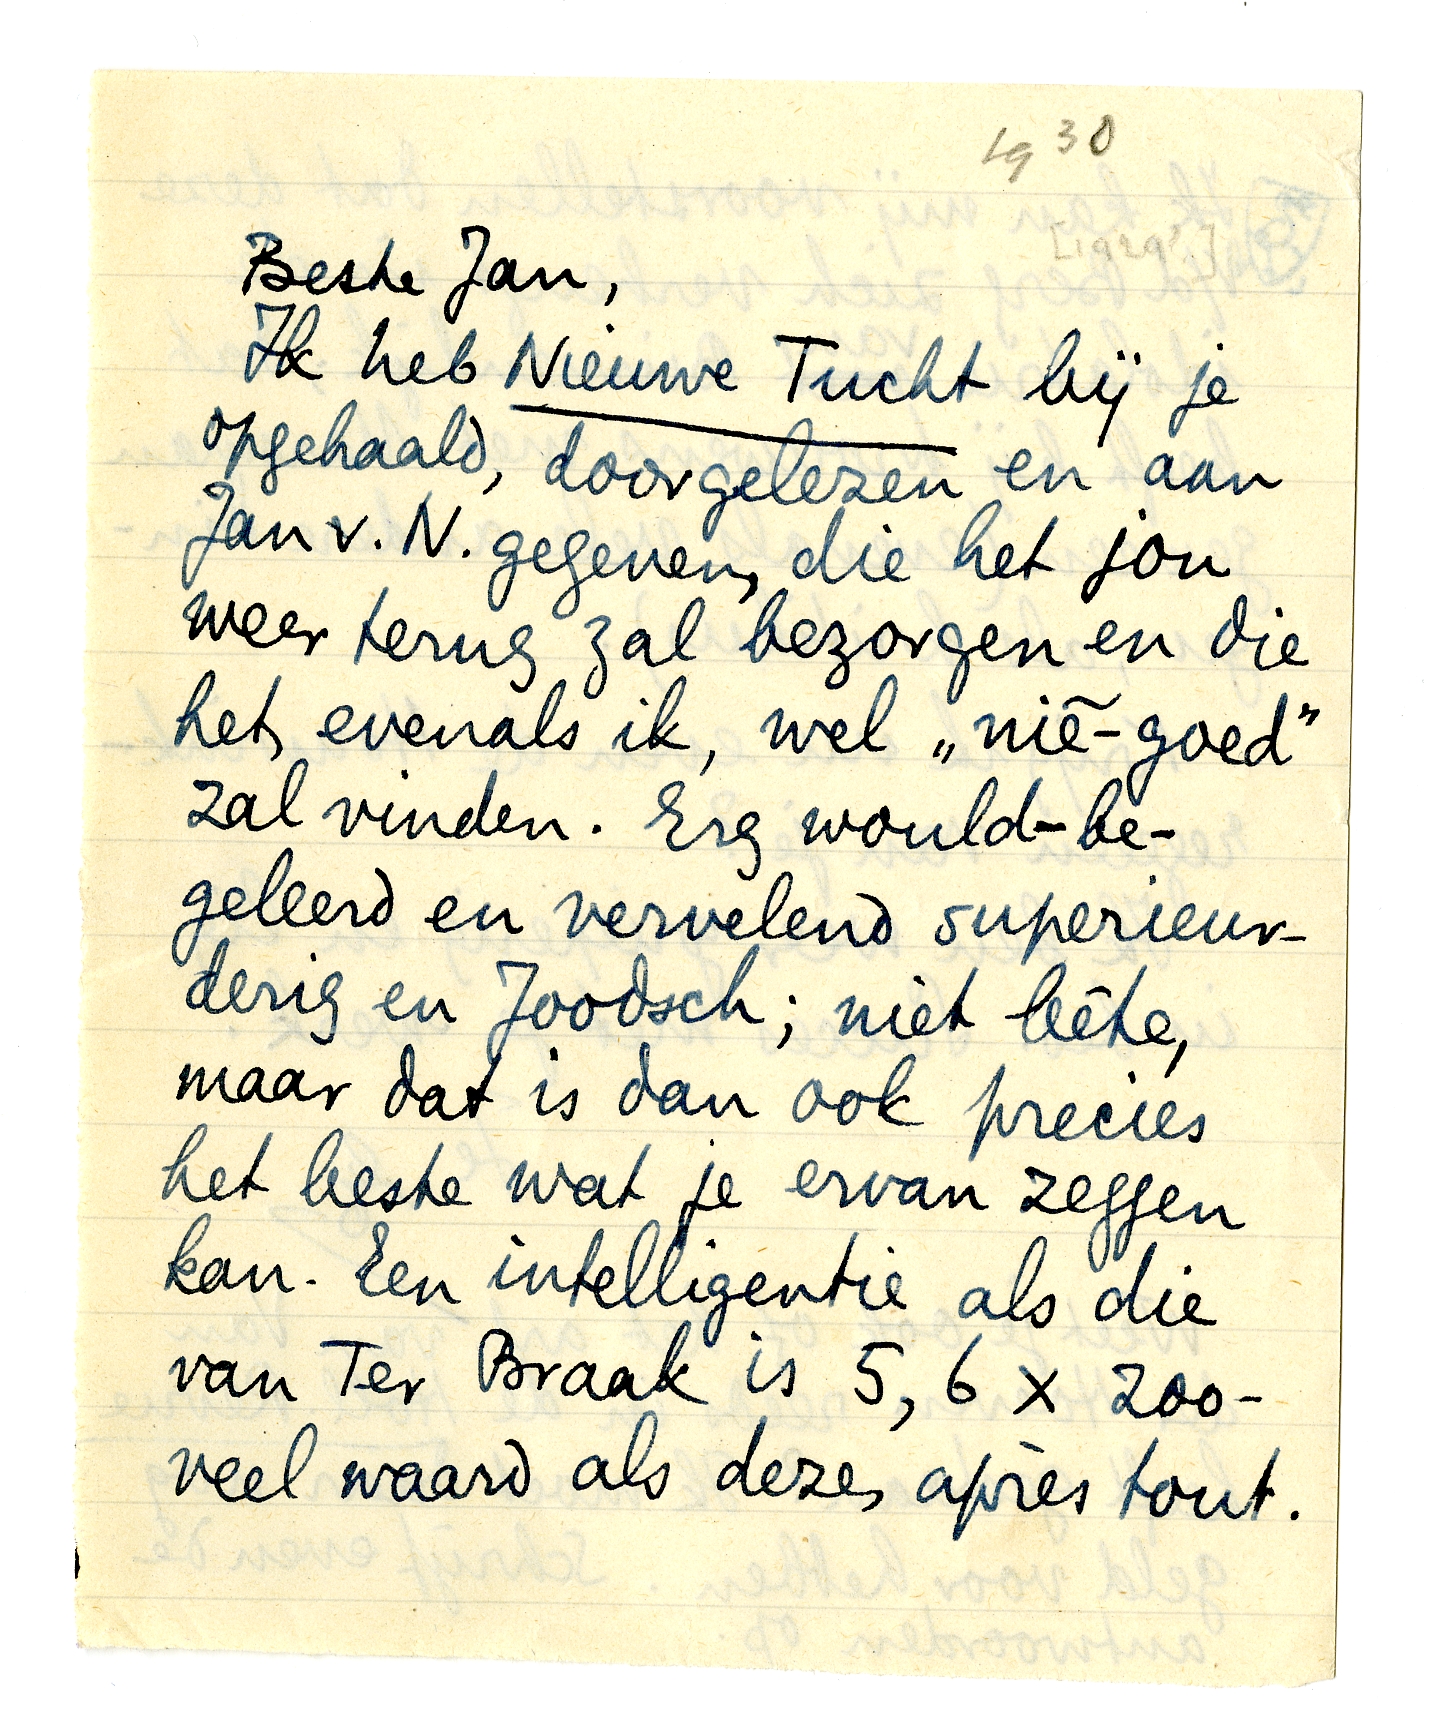 1930
[1929?]
Beste Jan,
Ik heb Nieuwe Tucht bij je
opgehaald, doorgelezen en aan
Jan v. N. gegeven, die het jou
weer terug zal bezorgen en die
het, evenals ik, wel „niē-goed”
zal vinden. Erg would-be-
geleerd en vervelend superieur-
derig en Joodsch; niet bête,
maar dat is dan ook precies
het beste wat je ervan zeggen
kan. Een intelligentie als die
van Ter Braak is 5, 6 x zoo-
veel waard als deze, après tout.